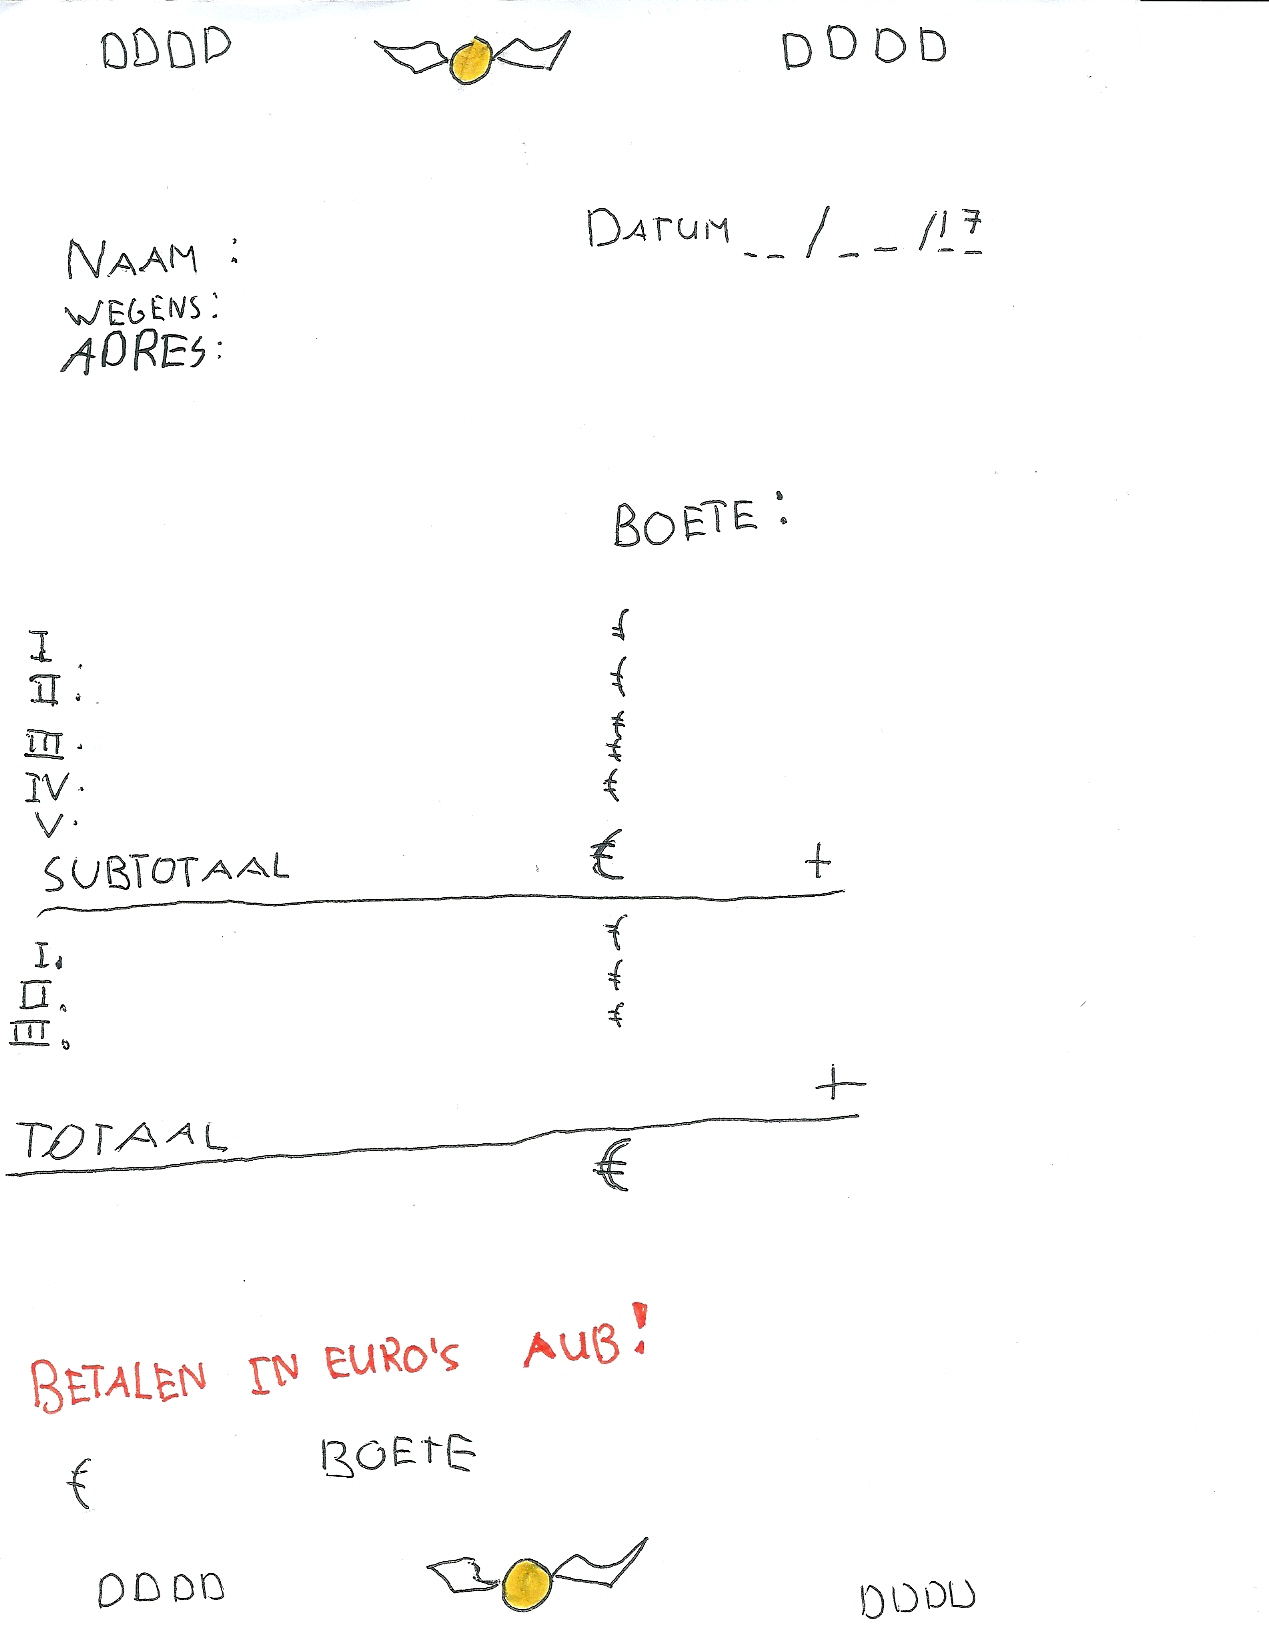 DDDD DDDD
DATUM _ _ / _ _ /17
NAAM :
WEGENS:
ADRES:
BOETE :
I €
II. €
III. €
IV. €
V. €
SUBTOTAAL € +
I. €
II. €
III. €
+
TOTAAL €
BETALEN IN EURO'S AUB!
€ BOETE
DDDD DDDD